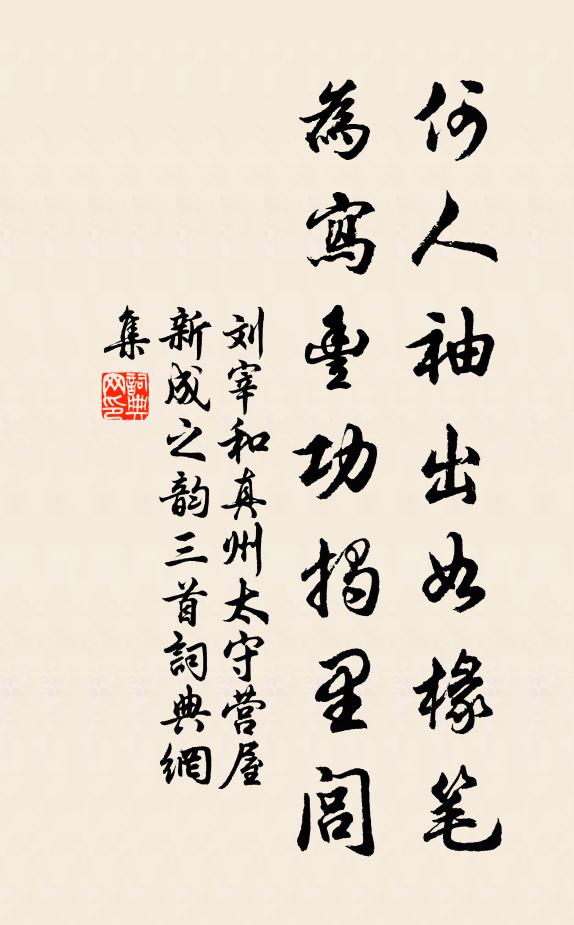 何人袖出如椽笔
為寫豊功揭里閭
刘宰和真州太守营屋
新成之韵三首詞典網
集
詞典网印